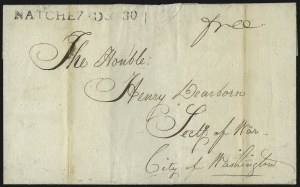 NATCHEZ DE 30
free
The Honble:
Henry Dearborn
Secty of War
City of Washington